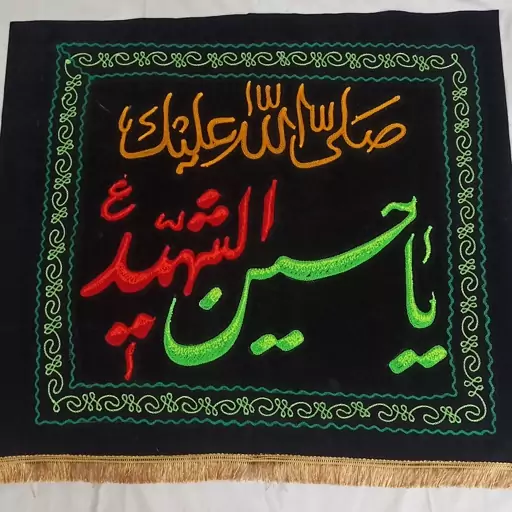 صلی الله علیک
یا حسین الشهید ع